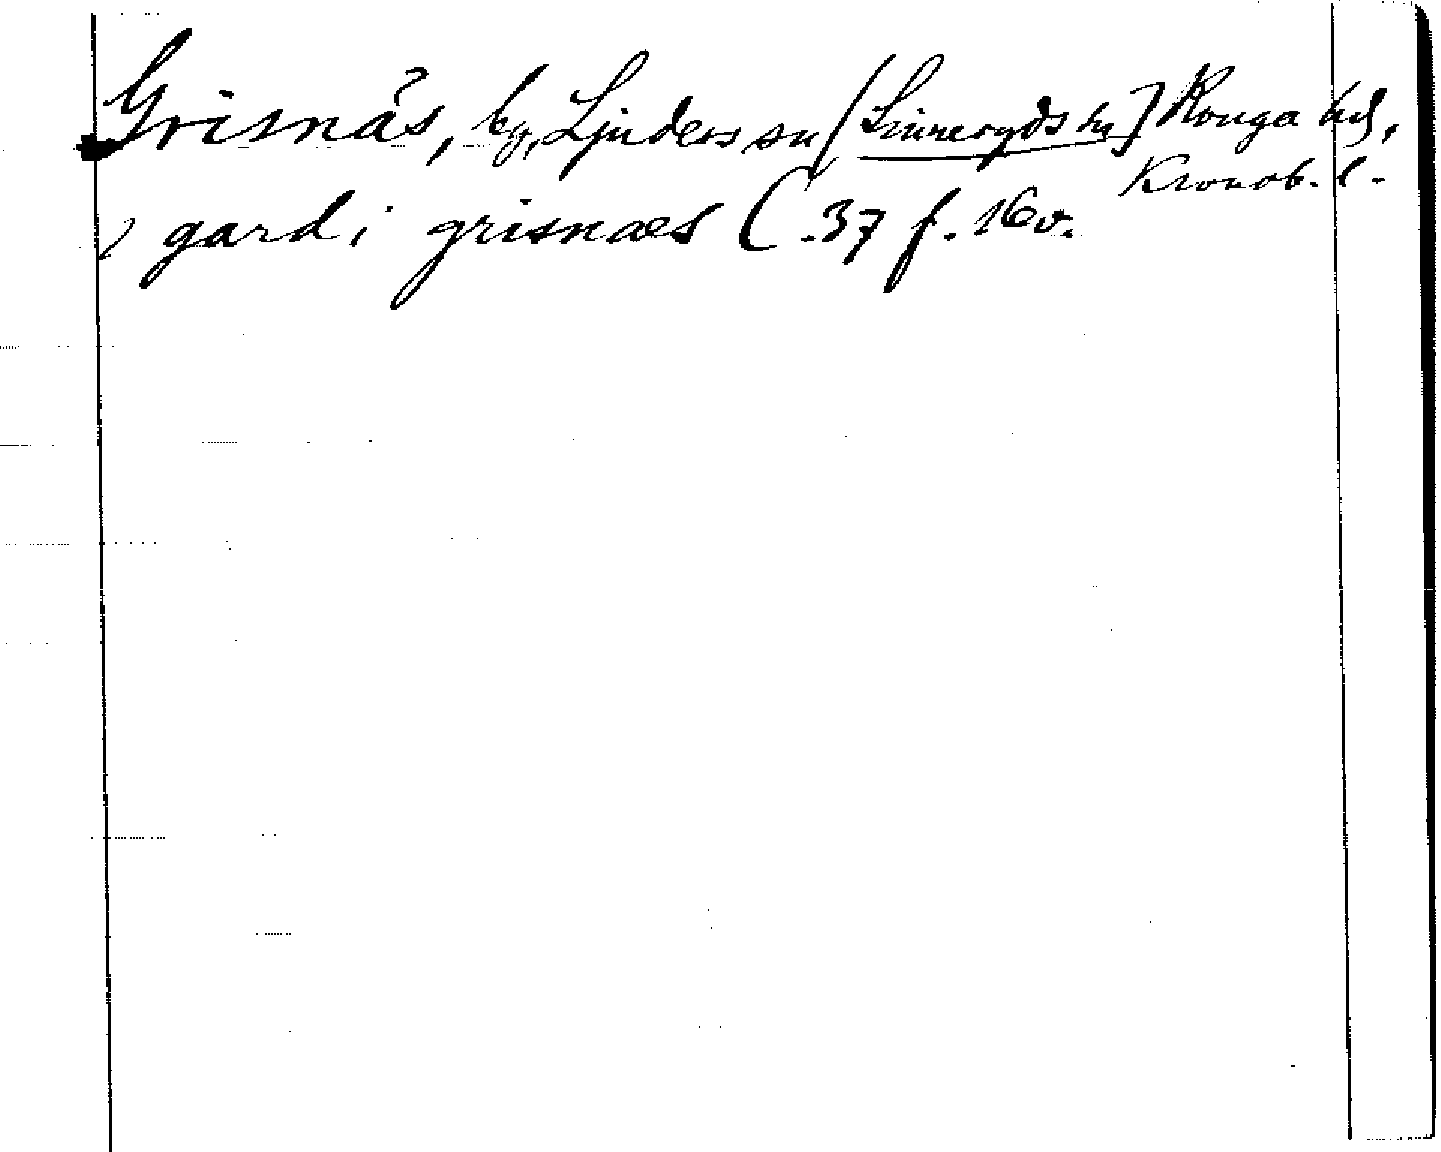 Grisnäs, by, Ljuders sn [Linneryds hg] Konga hd,
Kronob. l.
1 gard i grisnæs C. 37 f. 16 v.